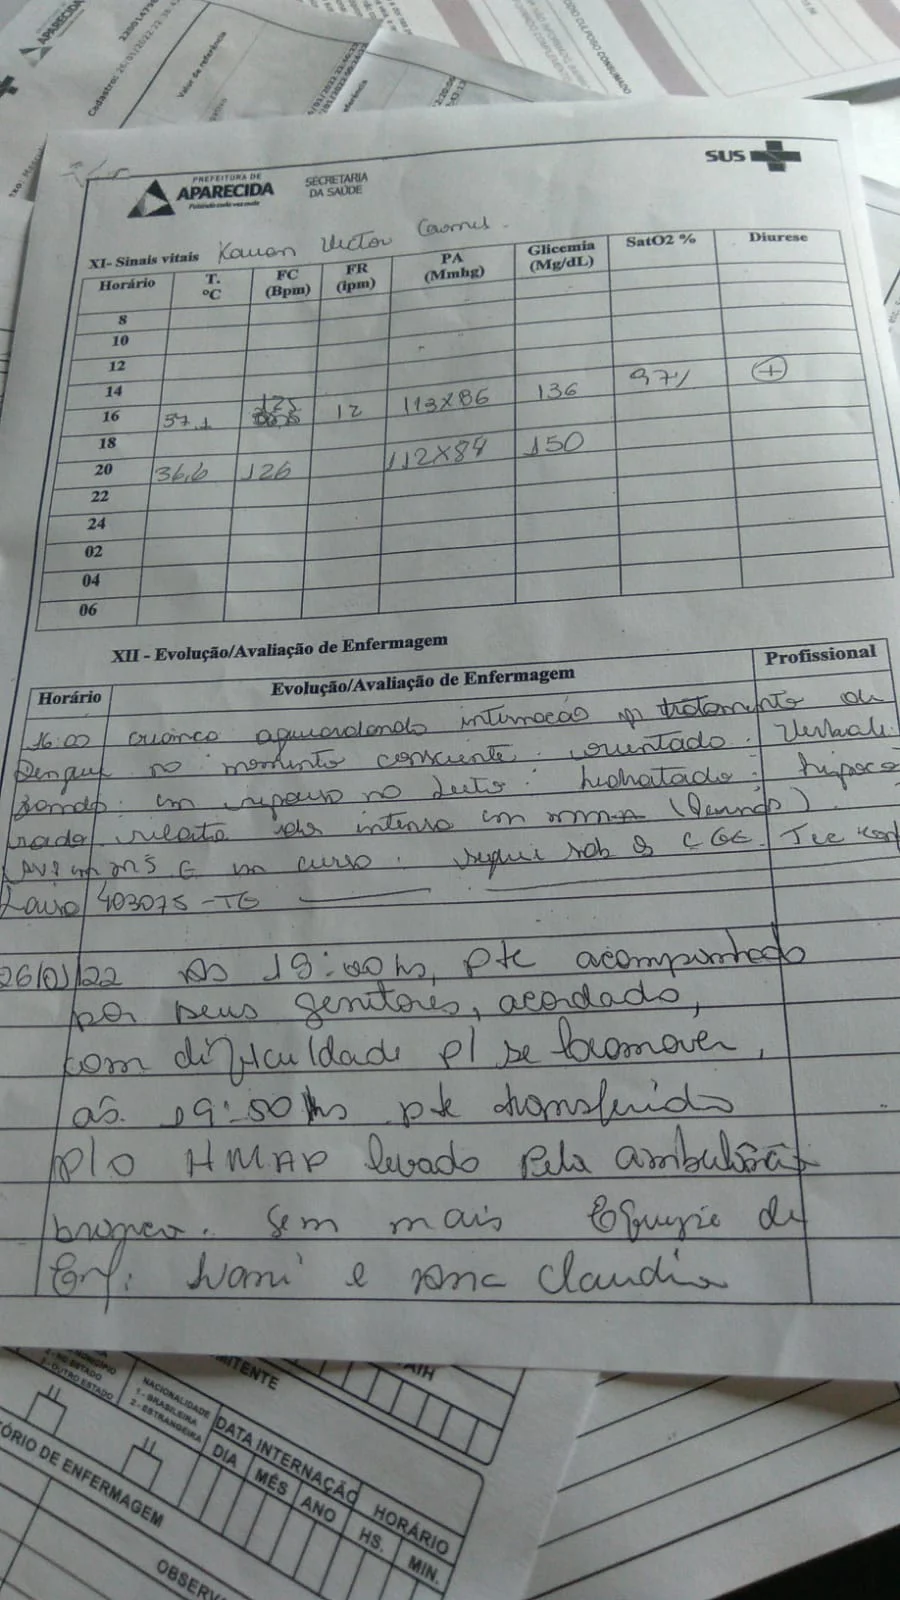 Cadastro: 26/01/2022 22:36:43
Valor de referência
PREFEITURA DE
APARECIDA
SECRETARIA
DA SAÚDE
SUS
XI- Sinais vitais Kauan Victor
Horário T. ºC FC (Bpm) FR (ipm) PA (Mmhg) Glicemia (Mg/dL) SatO2 % Diurese
8
10
12
14
16 37,1 125 12 113x86 136 97% +
18
20 36,6 126 112x84 150
22
24
02
04
06
XII - Evolução/Avaliação de Enfermagem
Horário Evolução/Avaliação de Enfermagem Profissional
16:00 criança aguardando internação p/ tratamento de
Dengue no momento consciente. orientado. Verbali
zando. em repouso no leito. hidratado. hipoco
rado relata dor intensa em
em curso. segue sob
403075-TE
26/01/22 As 19:00hs, pte acompanhado
por seus genitores, acordado,
com dificuldade p/ se locomover,
as 19:50hs pte transferido
p/o HMAP levado pela ambulância
branca. Sem mais Equipe de
Enf: Ivani e Ana Claudia
MITENTE
AIH
2 - NO ESTADO
3 - OUTRO ESTADO
NACIONALIDADE
1 - BRASILEIRA
2 - ESTRANGEIRA
DATA INTERNAÇÃO
DIA MÊS ANO
HORÁRIO
HS. MIN.
ÓRIO DE ENFERMAGEM
OBSERV